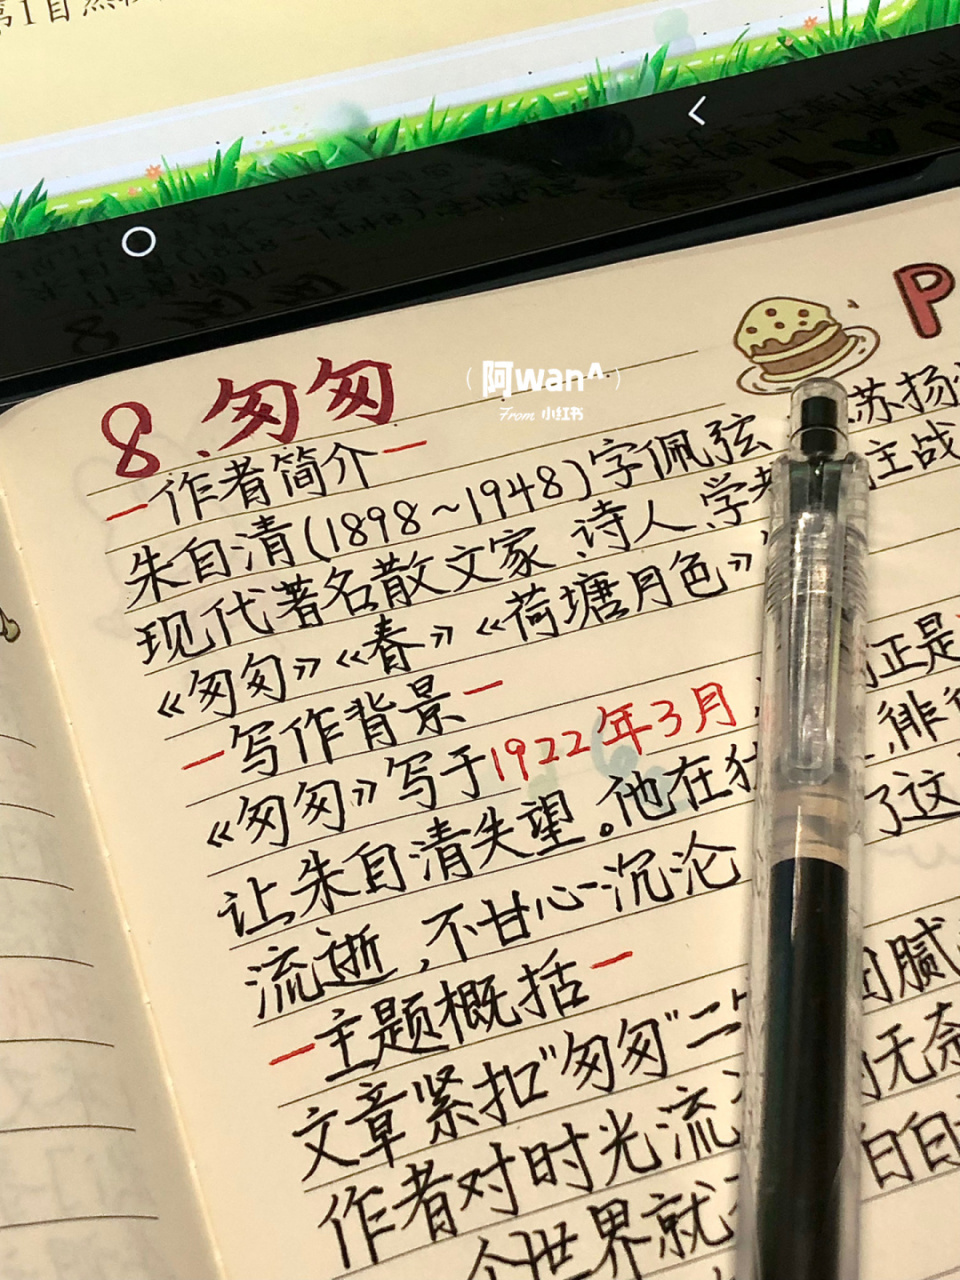 第1自然
P
阿wan^
From 小红书
8.匆匆
一作者简介一
朱自清(1898~1948)字佩弦 苏扬
现代著名散文家、诗人、学 主战
《匆匆》《春》《荷塘月色》
一写作背景一 正是
《匆匆》写于1922年3月 ,徘
让朱自清失望。他在 了这
流逝,不甘心沉沦
一主题概括一 腻
文章紧扣"匆匆"二 无奈
作者对时光流 白白
个世界就